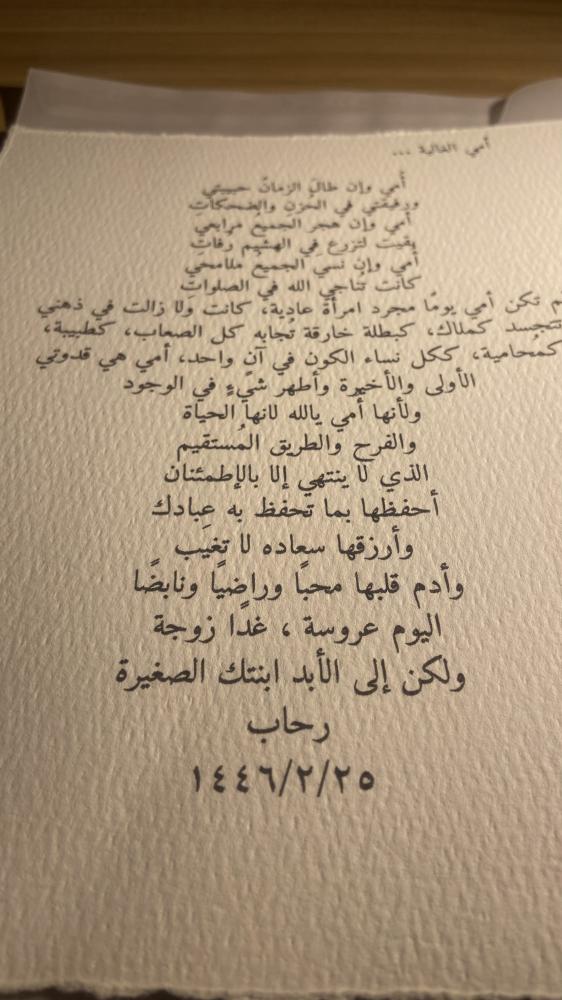 أمي الغالية ...
أمي وإن طالَ الزمانُ حبيبتي
ورفيقتي في الحُزنِ والضحكاتِ
أمي وإن هجر الجميعُ مرابعي
بقيت لتزرع في الهشيم رفاتِ
أمي وإن نسيَ الجميعُ ملامحي
كانت تُناجي الله في الصلواتِ
لم تكن أمي يومًا مجرد امرأة عادية، كانت ولا زالت في ذهني
تتجسد كملاك، كبطلة خارقة تُجابه كل الصعاب، كطبيبة،
كمُحامية، ككل نساء الكون في آنٍ واحد، أمي هي قدوتي
الأولى والأخيرة وأطهر شيءٍ في الوجود
ولأنها أُمي يالله لانها الحياة
والفرح والطريق المُستقيم
الذي لا ينتهي إلا بالإطمئنان
أحفظها بما تحفظ به عِبادك
وأرزقها سعاده لا تغيَب
وأدم قلبها محبًا وراضيًا ونابضًا
اليوم عروسة ، غدًا زوجة
ولكن إلى الأبد ابنتك الصغيرة
رحاب
١٤٤٦/٢/٢٥